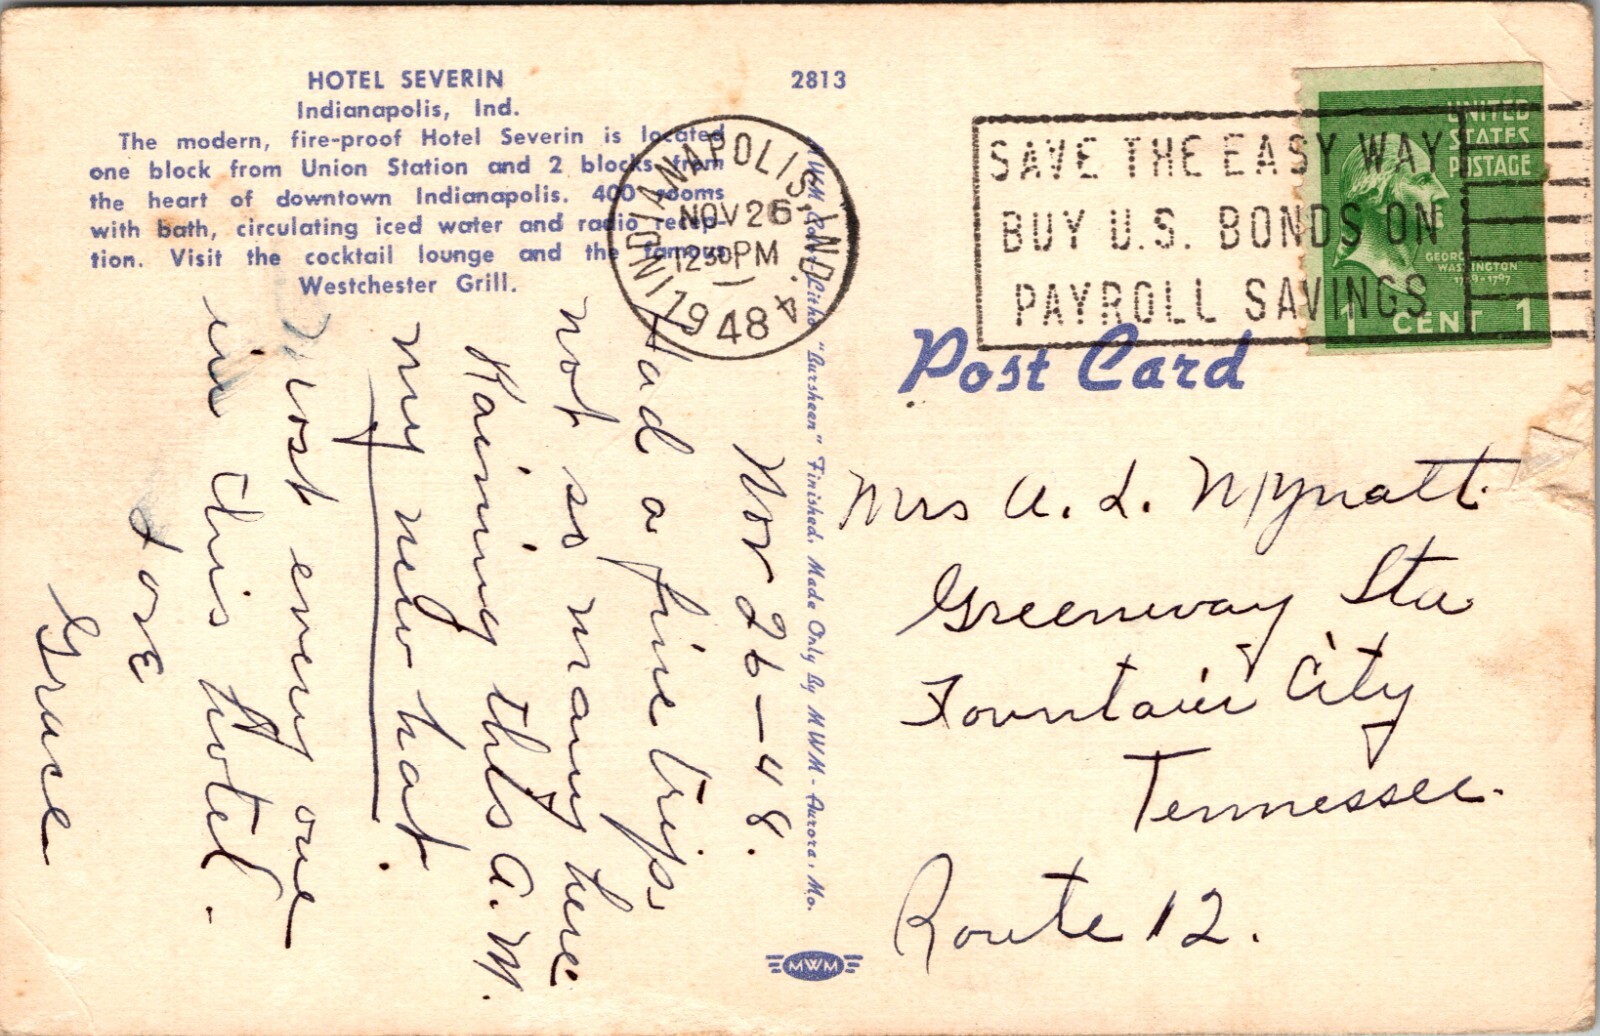 HOTEL SEVERIN
Indianapolis, Ind.
The modern, fire-proof Hotel Severin is located
one block from Union Station and 2 blocks from
the heart of downtown Indianapolis. 400 rooms
with bath, circulating iced water and radio recep-
tion. Visit the cocktail lounge and the famous
Westchester Grill.
2813
INDIANAPOLIS, IND. 4
NOV 26
12 30 PM
1948
SAVE THE EASY WAY
BUY U.S. BONDS ON
PAYROLL SAVINGS
UNITED
STATES
POSTAGE
GEORGE
WASHINGTON
1789-1797
1 CENT 1
Post Card
MWM Color-Litho "Bursheen" Finished. Made Only By MWM - Aurora, Mo.
MWM
Nov 26-48.
Had a fine trip.
not so many here
Raining this A.M.
my new hat.
Most every one
in this hotel.
Love
Grace
Mrs A. L. Mynatt.
Greenway Sta
Fountain City
Tennessee.
Route 12.